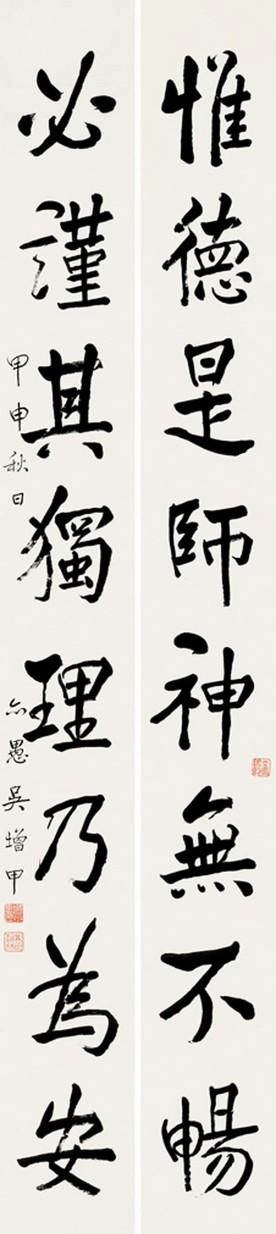 惟德是師神無不暢
必謹其獨理乃為安
甲申秋日
亦愚吳增甲